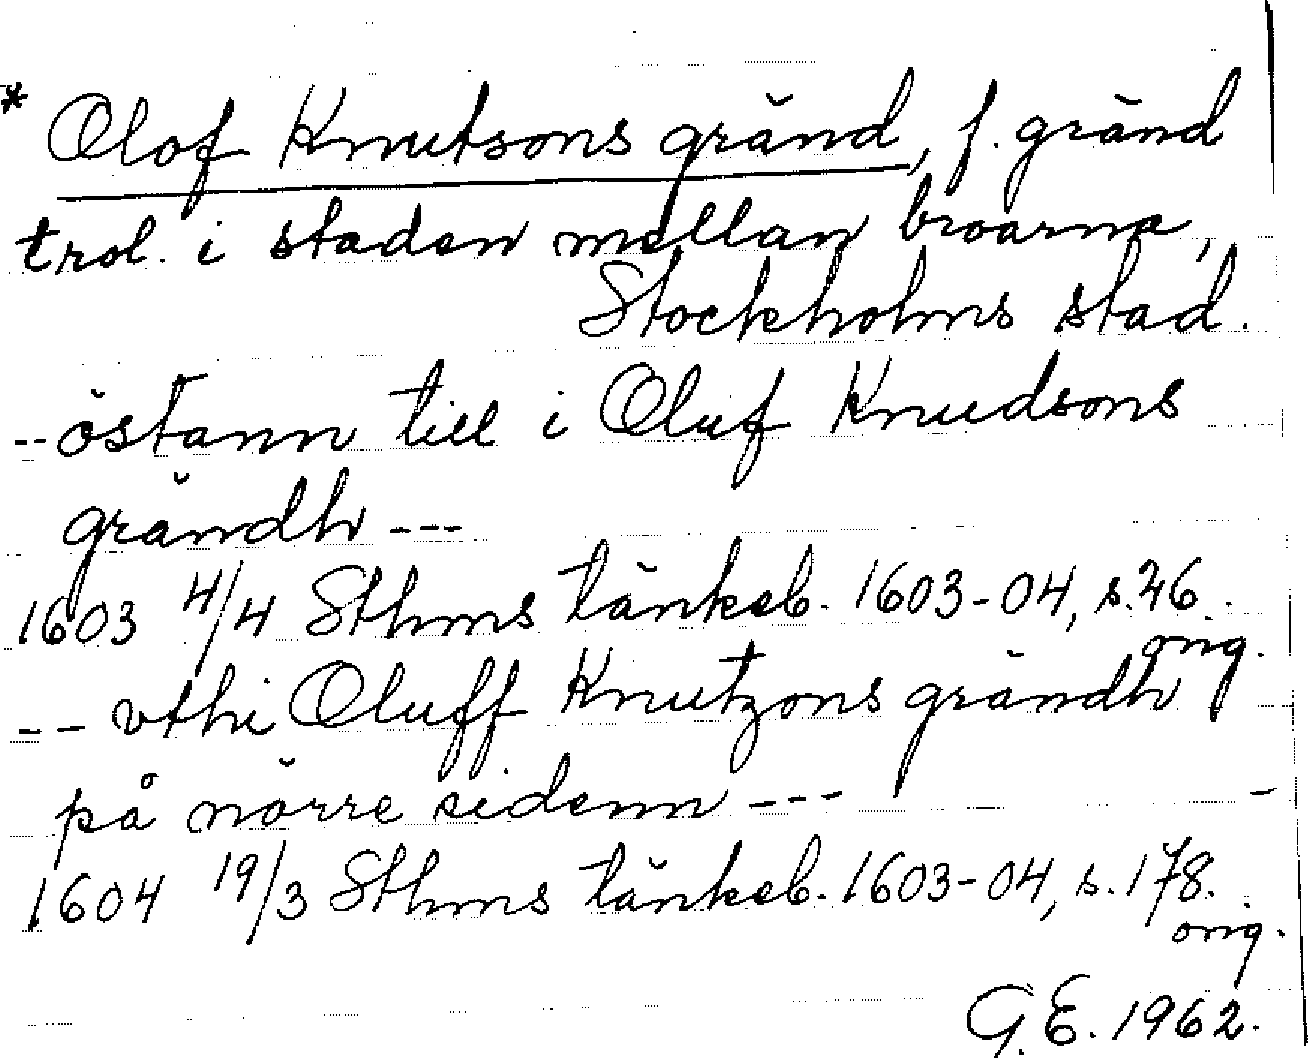 * Olof Knutsons gränd, f. gränd
trol. i staden mellan broarna,
Stockholms stad.
-- östann till i Oluf Knudsons
grändh ---
1603 4/4 Sthms tänkeb. 1603-04, s. 26.
orig.
-- vthi Oluff Knutzons grändh
på nörre sidenn ---
1604 19/3 Sthms tänkeb. 1603-04, s. 178.
orig.
G.E. 1962.